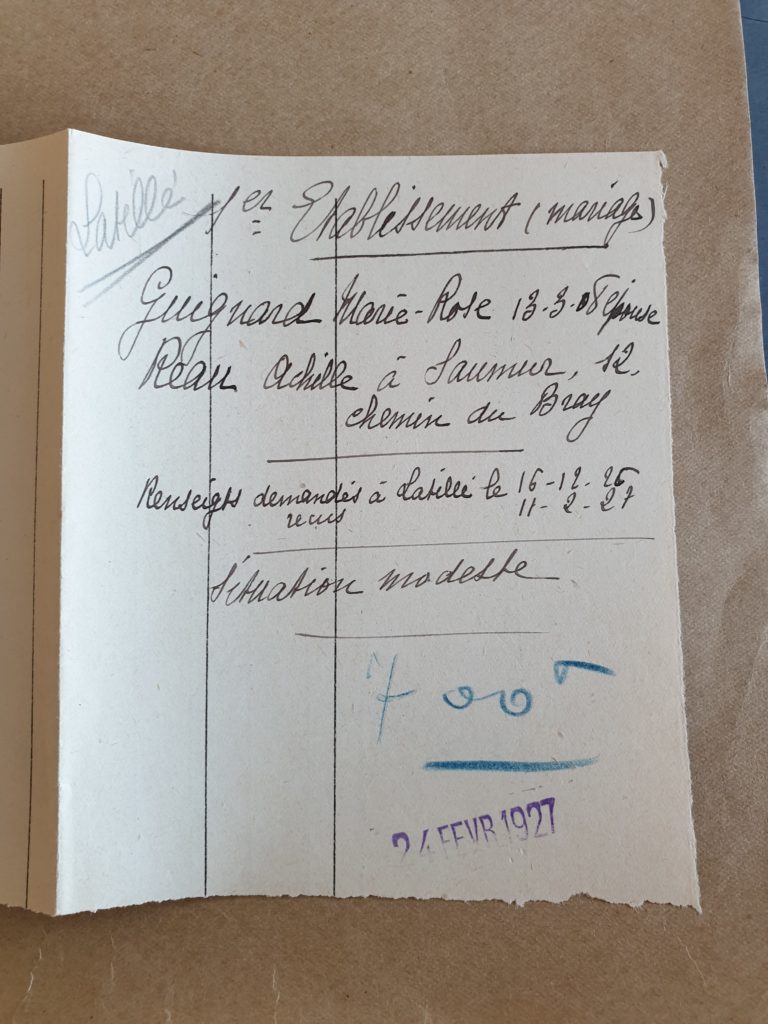 Latillé
1er Etablissement (mariage)
Guignard Marie-Rose 13-3-08 épouse
Réau Achille à Saumur, 12,
chemin du Bray
Renseigts demandés à Latillé le 16-12-26
recus 11-2-27
Situation modeste
700f
24 FEVR 1927